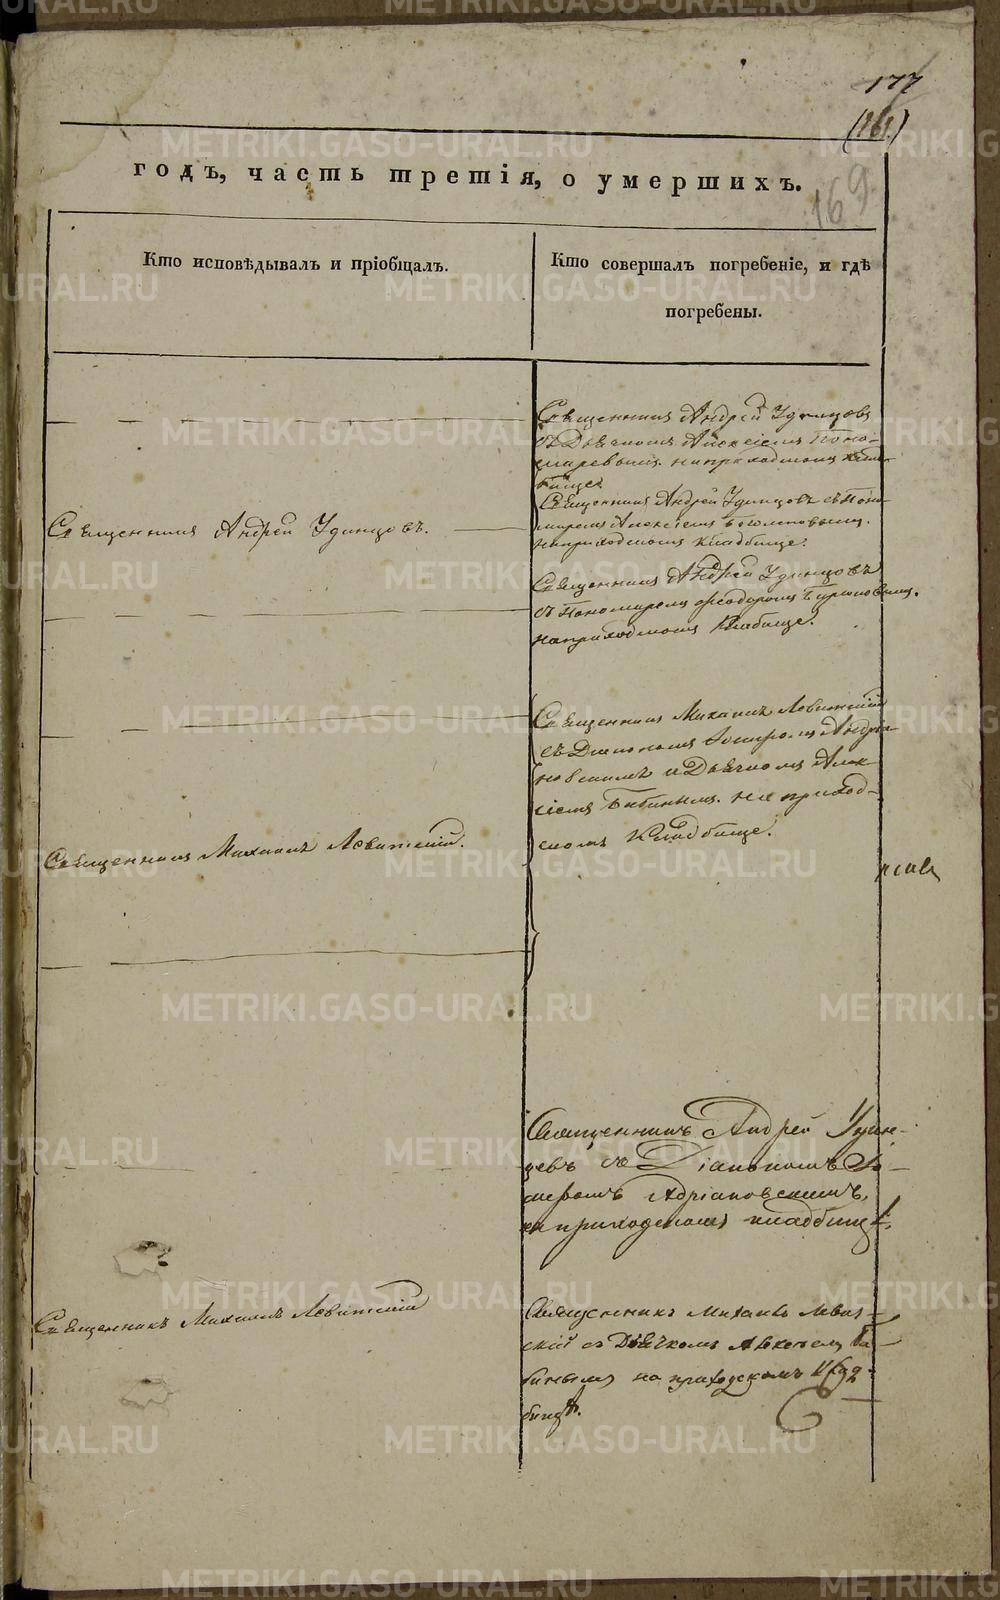 177
(161.)
169
годъ, часть третія, о умершихъ.
Кто исповѣдывалъ и пріобщалъ.
Кто совершалъ погребеніе, и гдѣ
погребены.
Священникъ Андрей Удинцовъ
съ Дьячкомъ Алексіемъ Поно-
маревымъ. на приходскомъ клад-
бище.
Священникъ Андрей Удинцовъ.
Священникъ Андрей Удинцовъ съ Поно-
маремъ Алексіемъ
на приходскомъ кладбище.
Священникъ Андрей Удинцовъ
съ Пономаремъ Феодоромъ
на приходскомъ Кладбище.
Священникъ Михаилъ Левитскій
съ Діакономъ Андріа-
новскимъ и Дьячкомъ Алек-
сіемъ Бабинымъ. на приход-
скомъ Кладбище.
Священникъ Михаилъ Левитскій.
Священникъ Андрей Удин-
цевъ съ Діакономъ
Адріановскимъ,
на приходскомъ кладбищѣ.
Священникъ Михаилъ Левитскій
Священникъ Михаилъ Левит-
скій съ Дьячкомъ Алексѣемъ Ба-
бинымъ на приходскомъ Клад-
бищѣ.
METRIKI.GASO-URAL.RU